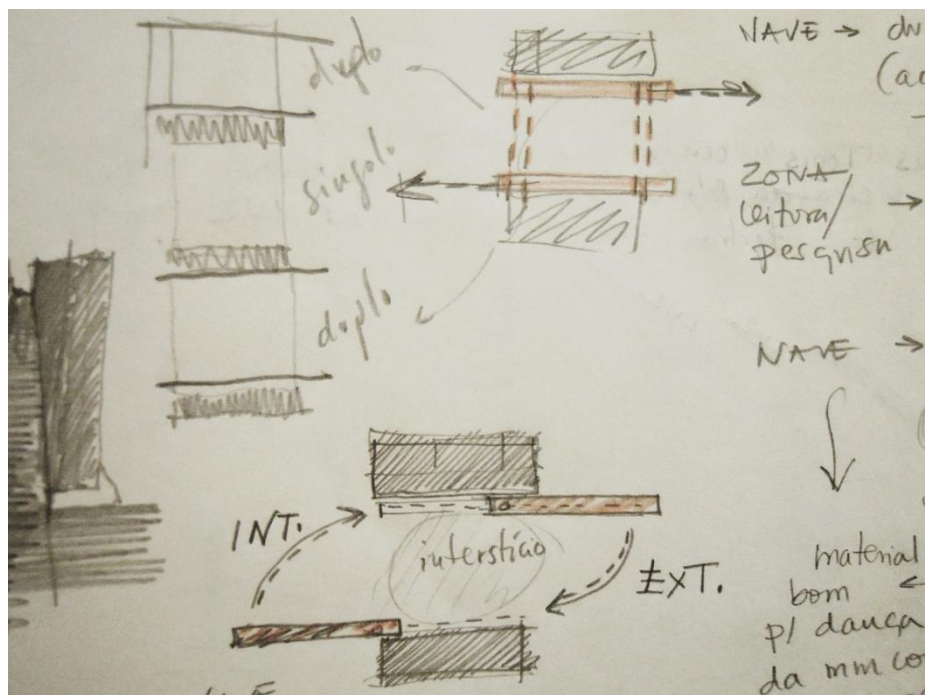 duplo
singolo
duplo
NAVE →
ZONA
leitura/ →
pesquisa
NAVE →
INT.
interstício
EXT.
material
bom ←
p/ dança
da mm